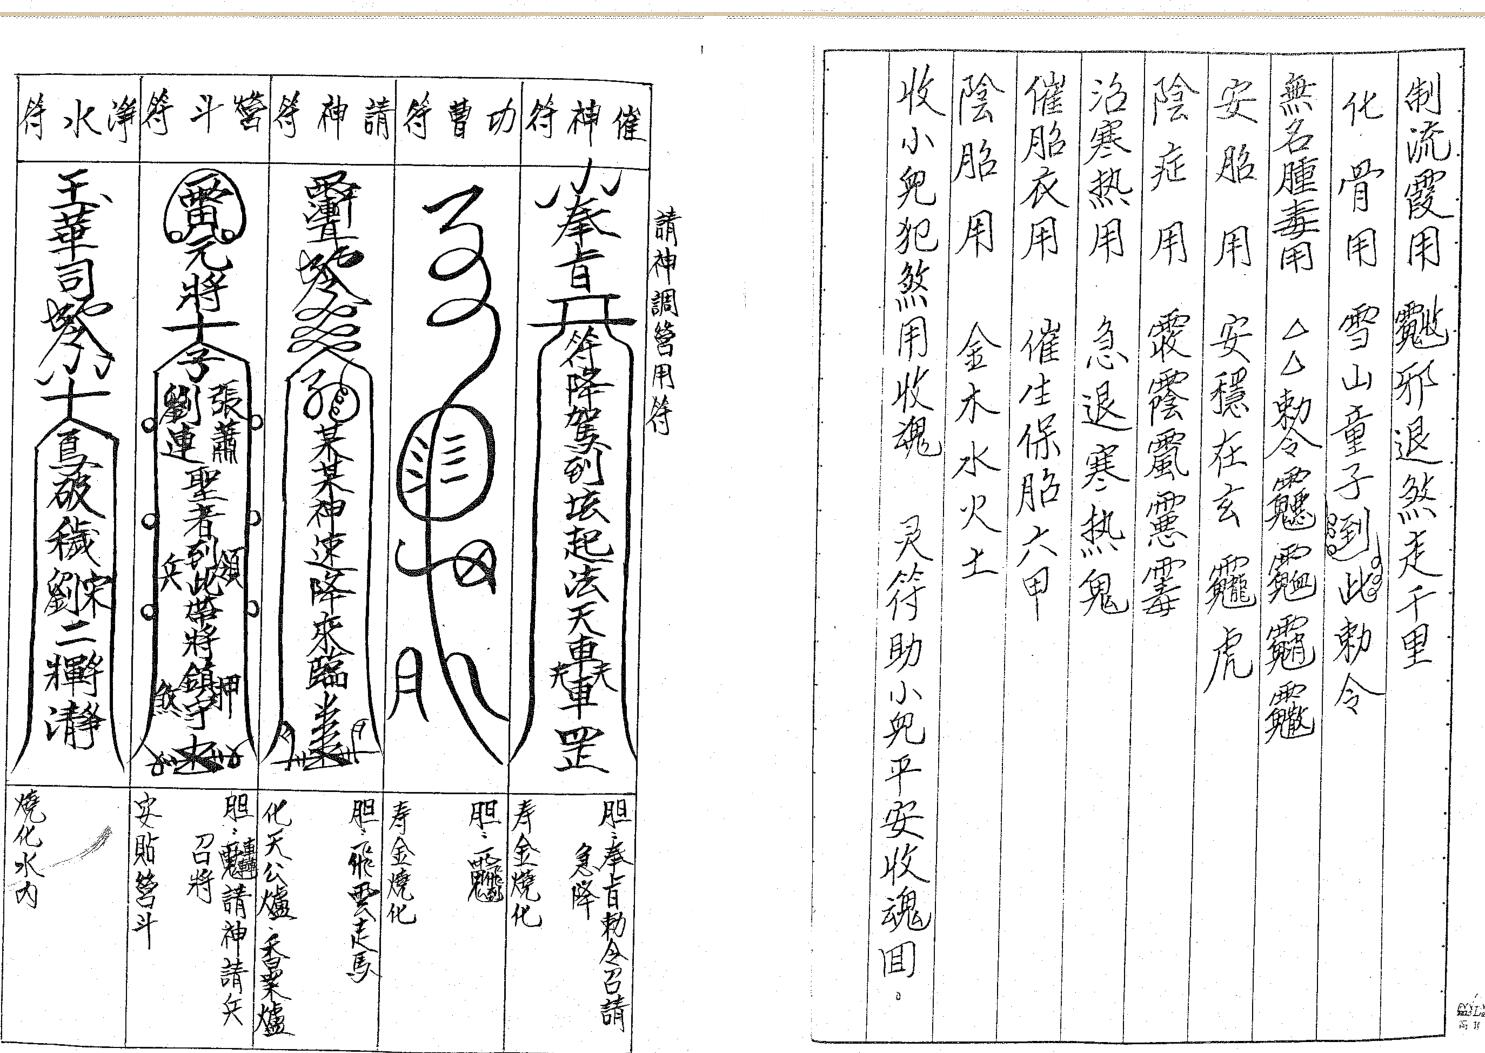 制流霞用 邪退煞走千里
化骨用 雪山童子到此勅令
無名腫毒用 △△勅令
安胎用 安穩在玄 虎
陰症用
治寒热用 急退寒热鬼
催胎衣用 催生保胎六甲
陰胎用 金木水火土
收小兒犯煞用收魂 灵符助小兒平安收魂回。
請神調營用符
催神符
奉旨
符降駕到垓起法天車車罡
夫夫
胆:奉旨勅令召請
急降
寿金燒化
功曹符
胆:
寿金燒化
請神符
某某神速降來臨
胆:飛雲走馬
化天公爐·香業爐
營斗符
元將
張蕭
劉連
聖者到此帶將鎮守
領兵
押煞
胆: 請神請兵
召將
安貼營斗
淨水符
玉華司
破穢
宋劉二
燒化水內